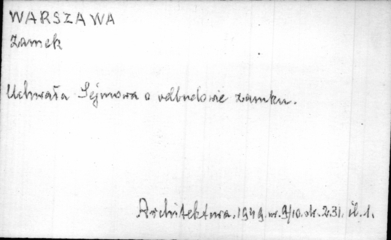 WARSZAWA
Zamek
Uchwała Sejmowa o odbudowie zamku.
Architektura, 1949. nr. 9/10. str. 231. il. 1.